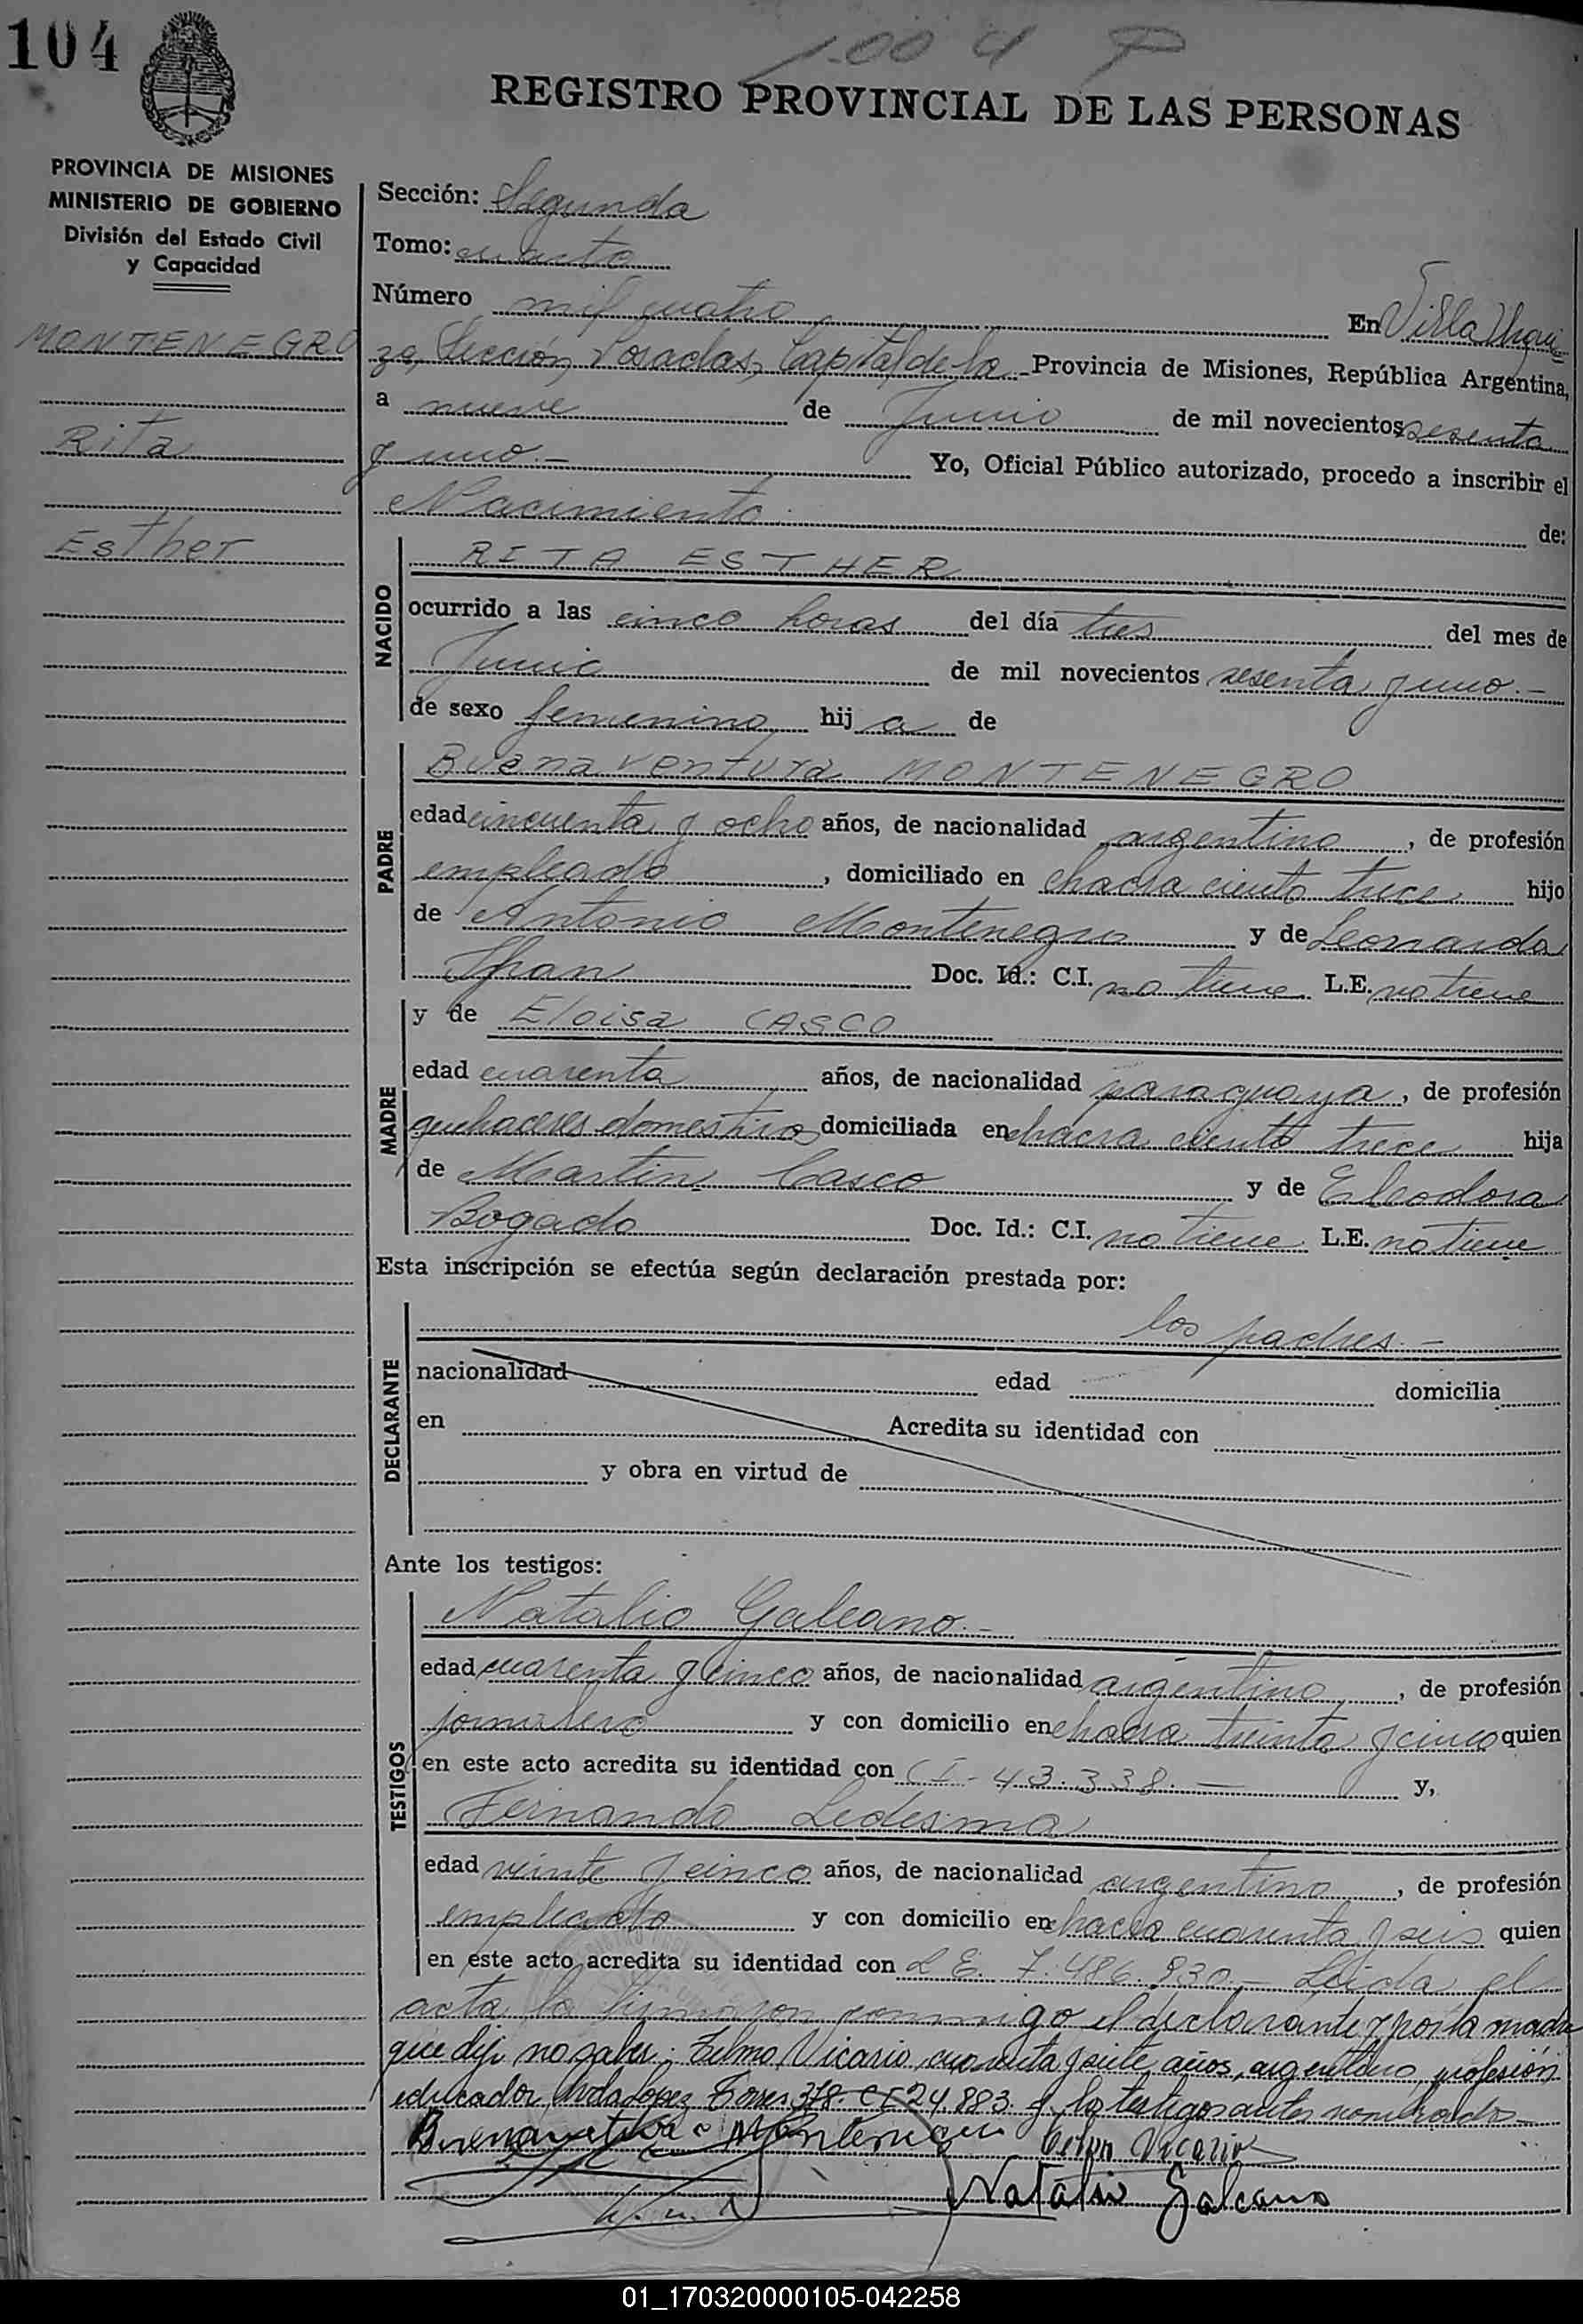 104
1.004 P
REGISTRO PROVINCIAL DE LAS PERSONAS
PROVINCIA DE MISIONES
MINISTERIO DE GOBIERNO
División del Estado Civil
y Capacidad
MONTENEGRO
Rita
Esther
Sección: Segunda
Tomo: cuarto
Número mil cuatro En Villa Urqui
za, Sección Posadas, Capital de la Provincia de Misiones, República Argentina,
a nueve de Junio de mil novecientos sesenta
y uno.- Yo, Oficial Público autorizado, procedo a inscribir el
Nacimiento de:
NACIDO
RITA ESTHER
ocurrido a las cinco horas del día tres del mes de
Junio de mil novecientos sesenta y uno.-
de sexo femenino hij a de
PADRE
Buenaventura MONTENEGRO
edad cincuenta y ocho años, de nacionalidad argentino, de profesión
empleado, domiciliado en chacra ciento trece hijo
de Antonio Montenegro y de Leonarda
Doc. Id.: C.I. no tiene L.E. no tiene
MADRE
y de Eloisa CASCO
edad cuarenta años, de nacionalidad paraguaya, de profesión
quehaceres domesticos domiciliada en chacra ciento trece hija
de Martin Casco y de Eleodora
Bogado Doc. Id.: C.I. no tiene L.E. no tiene
Esta inscripción se efectúa según declaración prestada por:
DECLARANTE
los padres.-
nacionalidad edad domicilia
en Acredita su identidad con
y obra en virtud de
Ante los testigos:
TESTIGOS
Natalio Galeano.-
edad cuarenta y cinco años, de nacionalidad argentino, de profesión
jornalero y con domicilio en chacra treinta y cinco quien
en este acto acredita su identidad con C I - 43.338.- y,
Fernando Ledesma
edad veinte y cinco años, de nacionalidad argentino, de profesión
empleado y con domicilio en chacra cuarenta y seis quien
en este acto acredita su identidad con L E. 7.486.930.- Leida el
acta la firmaron conmigo el declarante y por la madre
que dijo no saber: Telmo Vicario, cuarenta y siete años, argentino, profesión
educador, Avda Lopez Torres 378. CI 24.883. y los testigos antes nombrados
Buenaventura Montenegro Telmo Vicario
Natalio Galeano
01_170320000105-042258